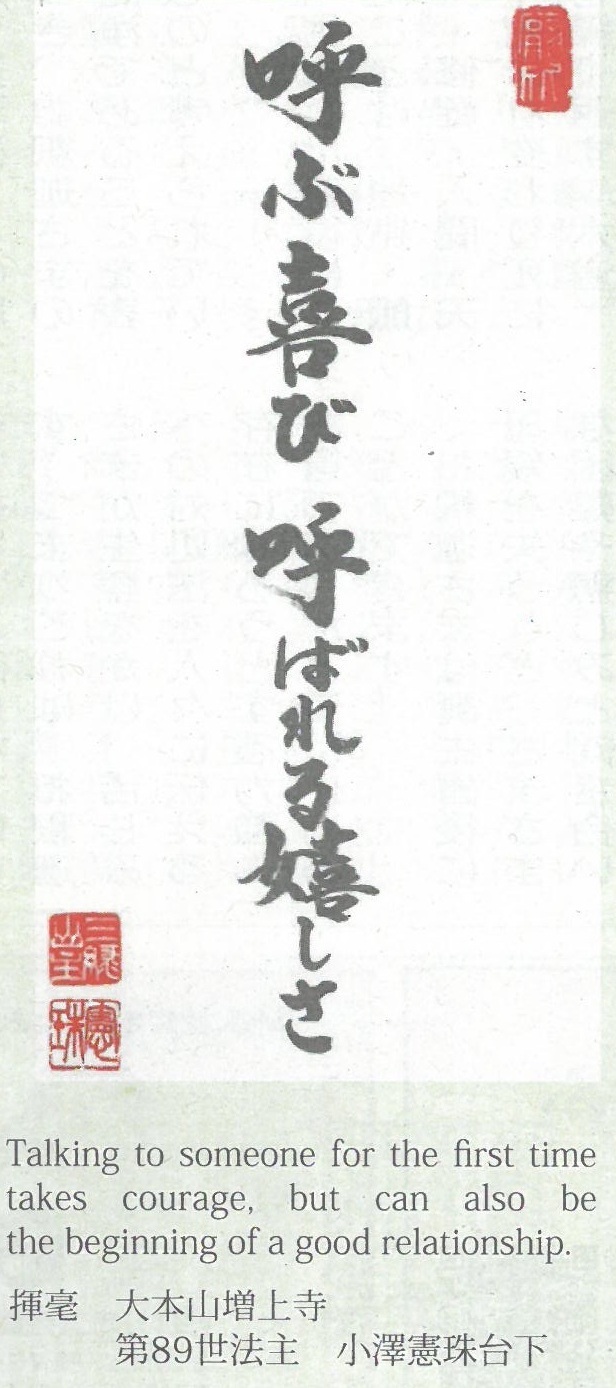 呼ぶ喜び 呼ばれる嬉しさ
憲珠
Talking to someone for the first time
takes courage, but can also be
the beginning of a good relationship.
揮毫　大本山増上寺
第89世法主　小澤憲珠台下